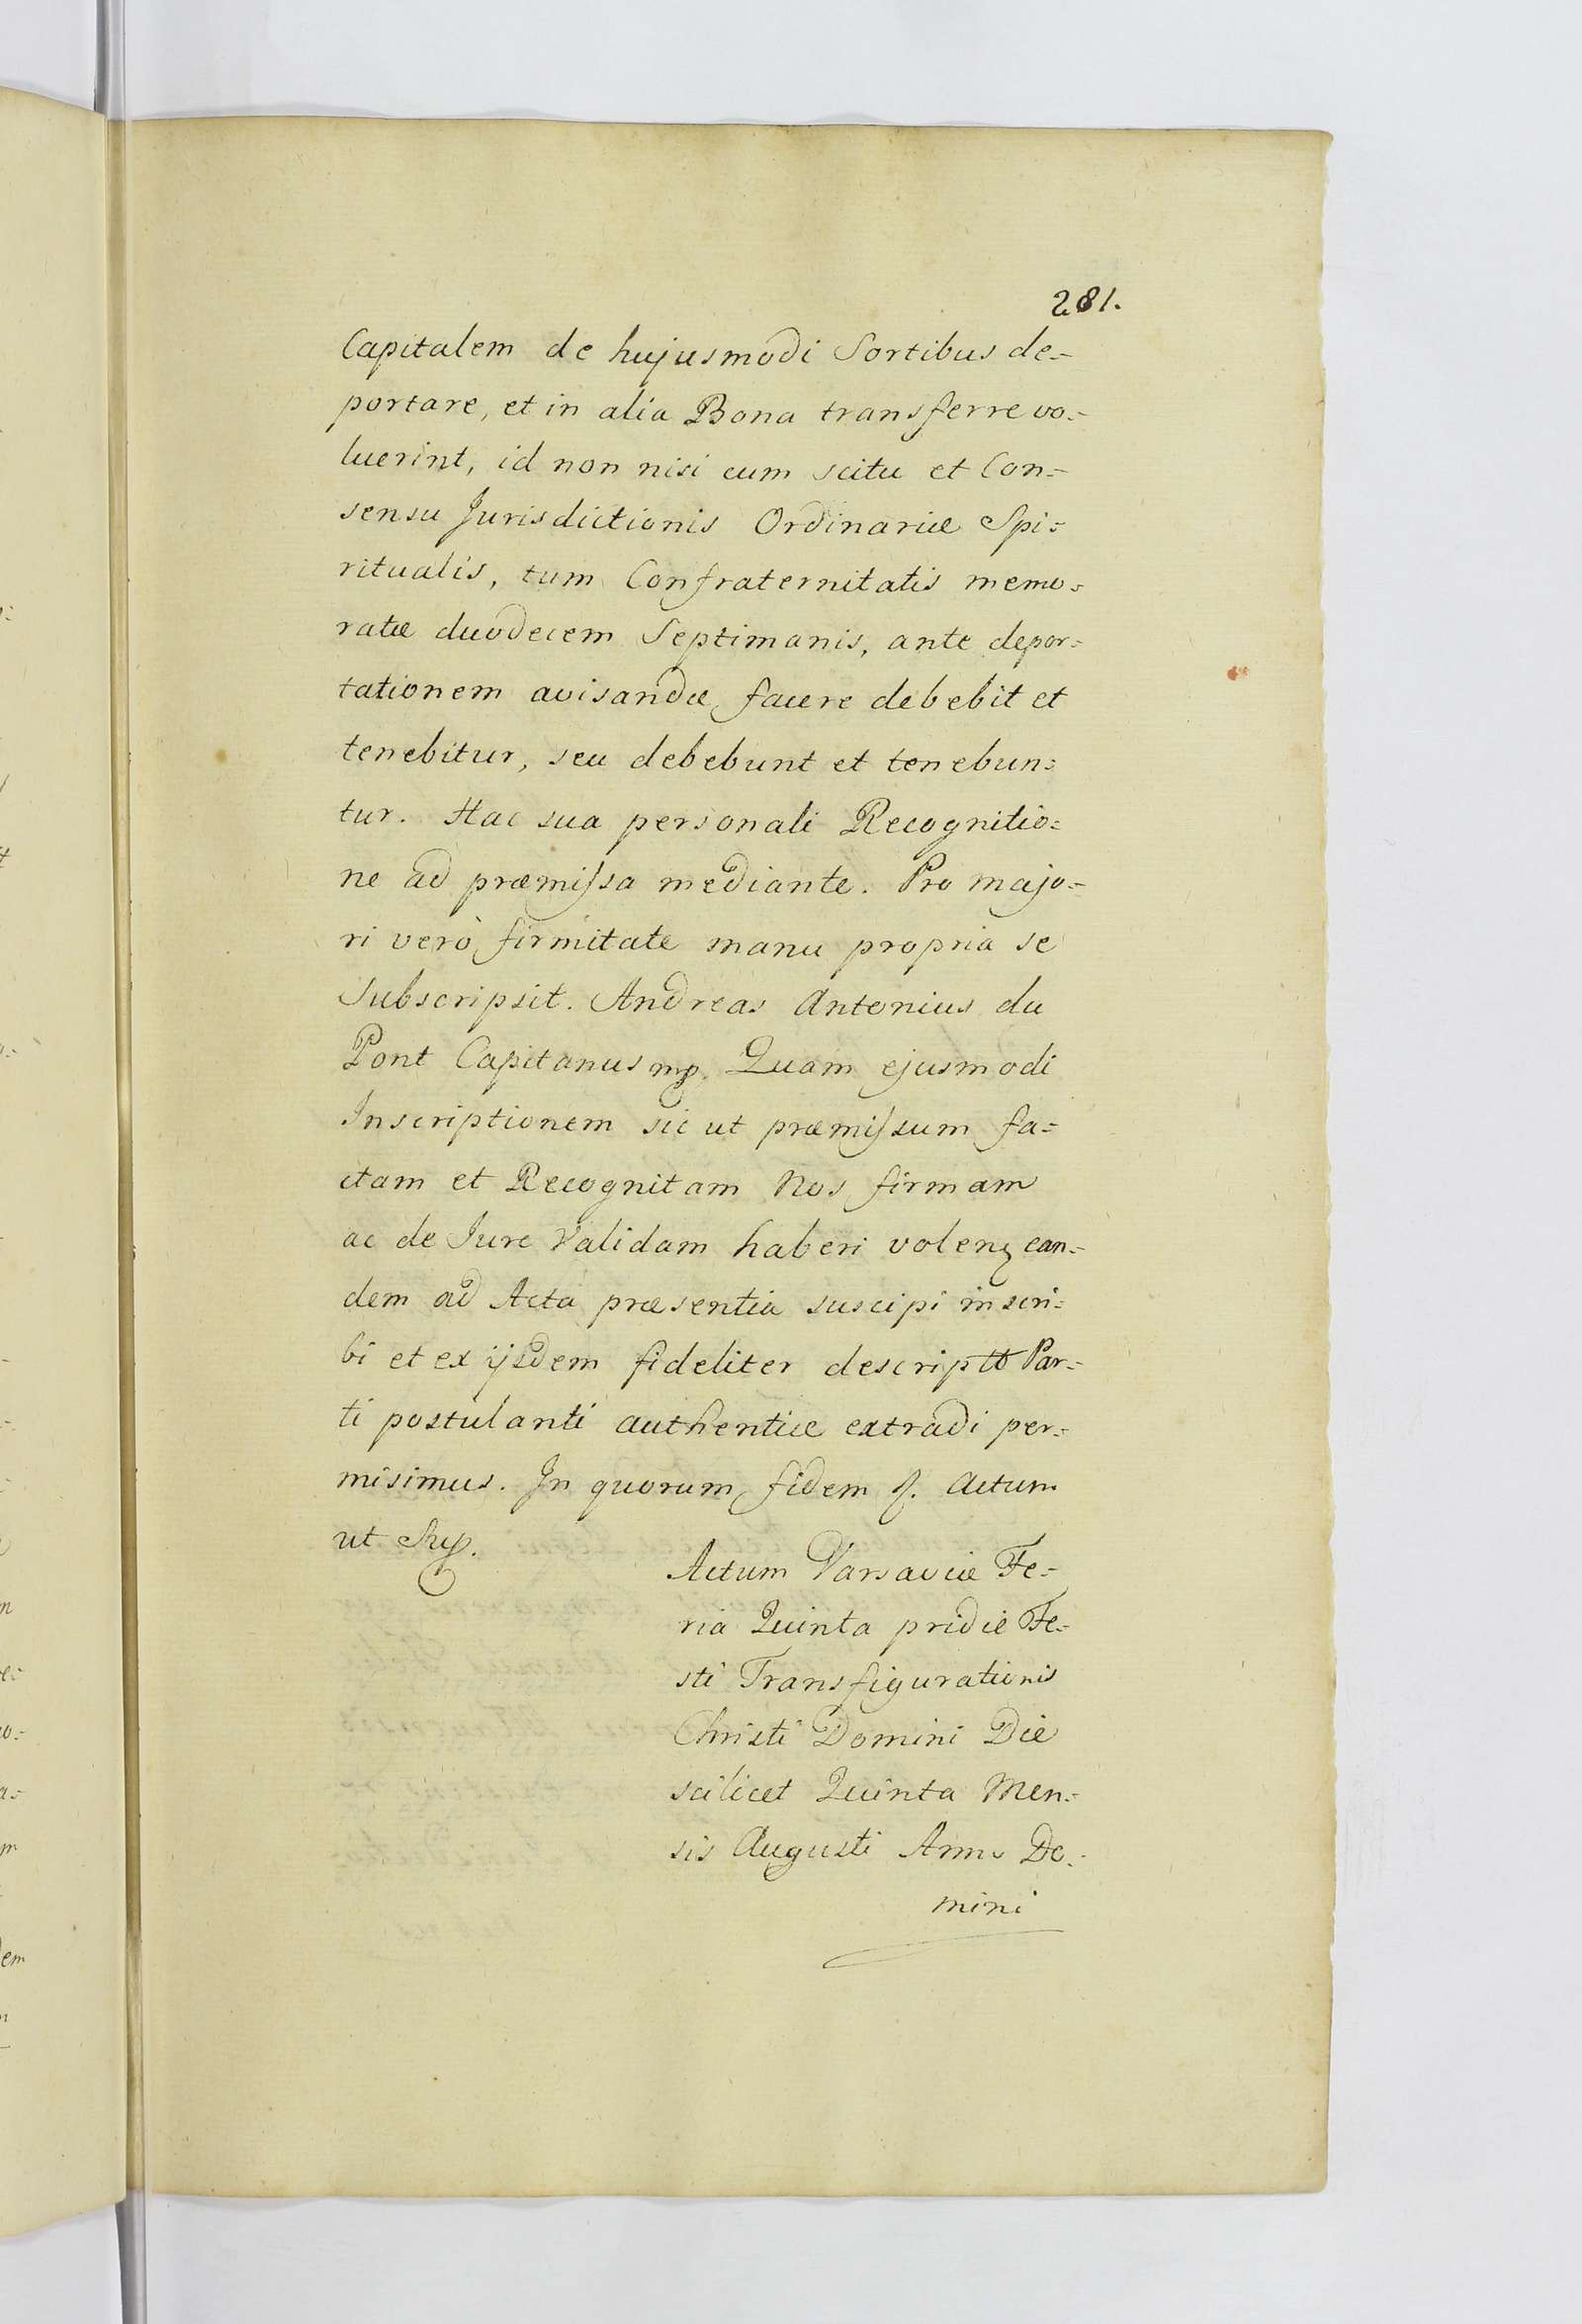 281.
Capitalem de hujusmodi Sortibus de=
portare, et in alia Bona transferre vo=
luerint, id non nisi cum scitu et Con=
sensu Jurisdictionis Ordinariæ Spi=
ritualis, tum Confraternitatis memo=
ratæ duodecem Septimanis, ante depor=
tationem avisandæ facere debebit et
tenebitur, seu debebunt et tenebun=
tur. Hac sua personali Recognitio=
ne ad præmissa mediante. Pro majo=
ri verò firmitate manu propria se
Subscripsit. Andreas Antonius du
Pont Capitanus mp. Quam ejusmodi
Inscriptionem sic ut præmissum fa=
ctam et Recognitam Nos firmam
ac de Jure Validam haberi volen; ean=
dem ad Acta præsentia suscipi inscri=
bi et ex ijsdem fideliter descripto Par=
ti postulanti authenticè extradi per=
misimus. In quorum fidem &. Actum
ut Sup.
Actum Varsaviæ Fe=
ria Quinta pridie Fe=
sti Transfigurationis
Christi Domini Die
scilicet Quinta Men=
sis Augusti Anno Do=
mini